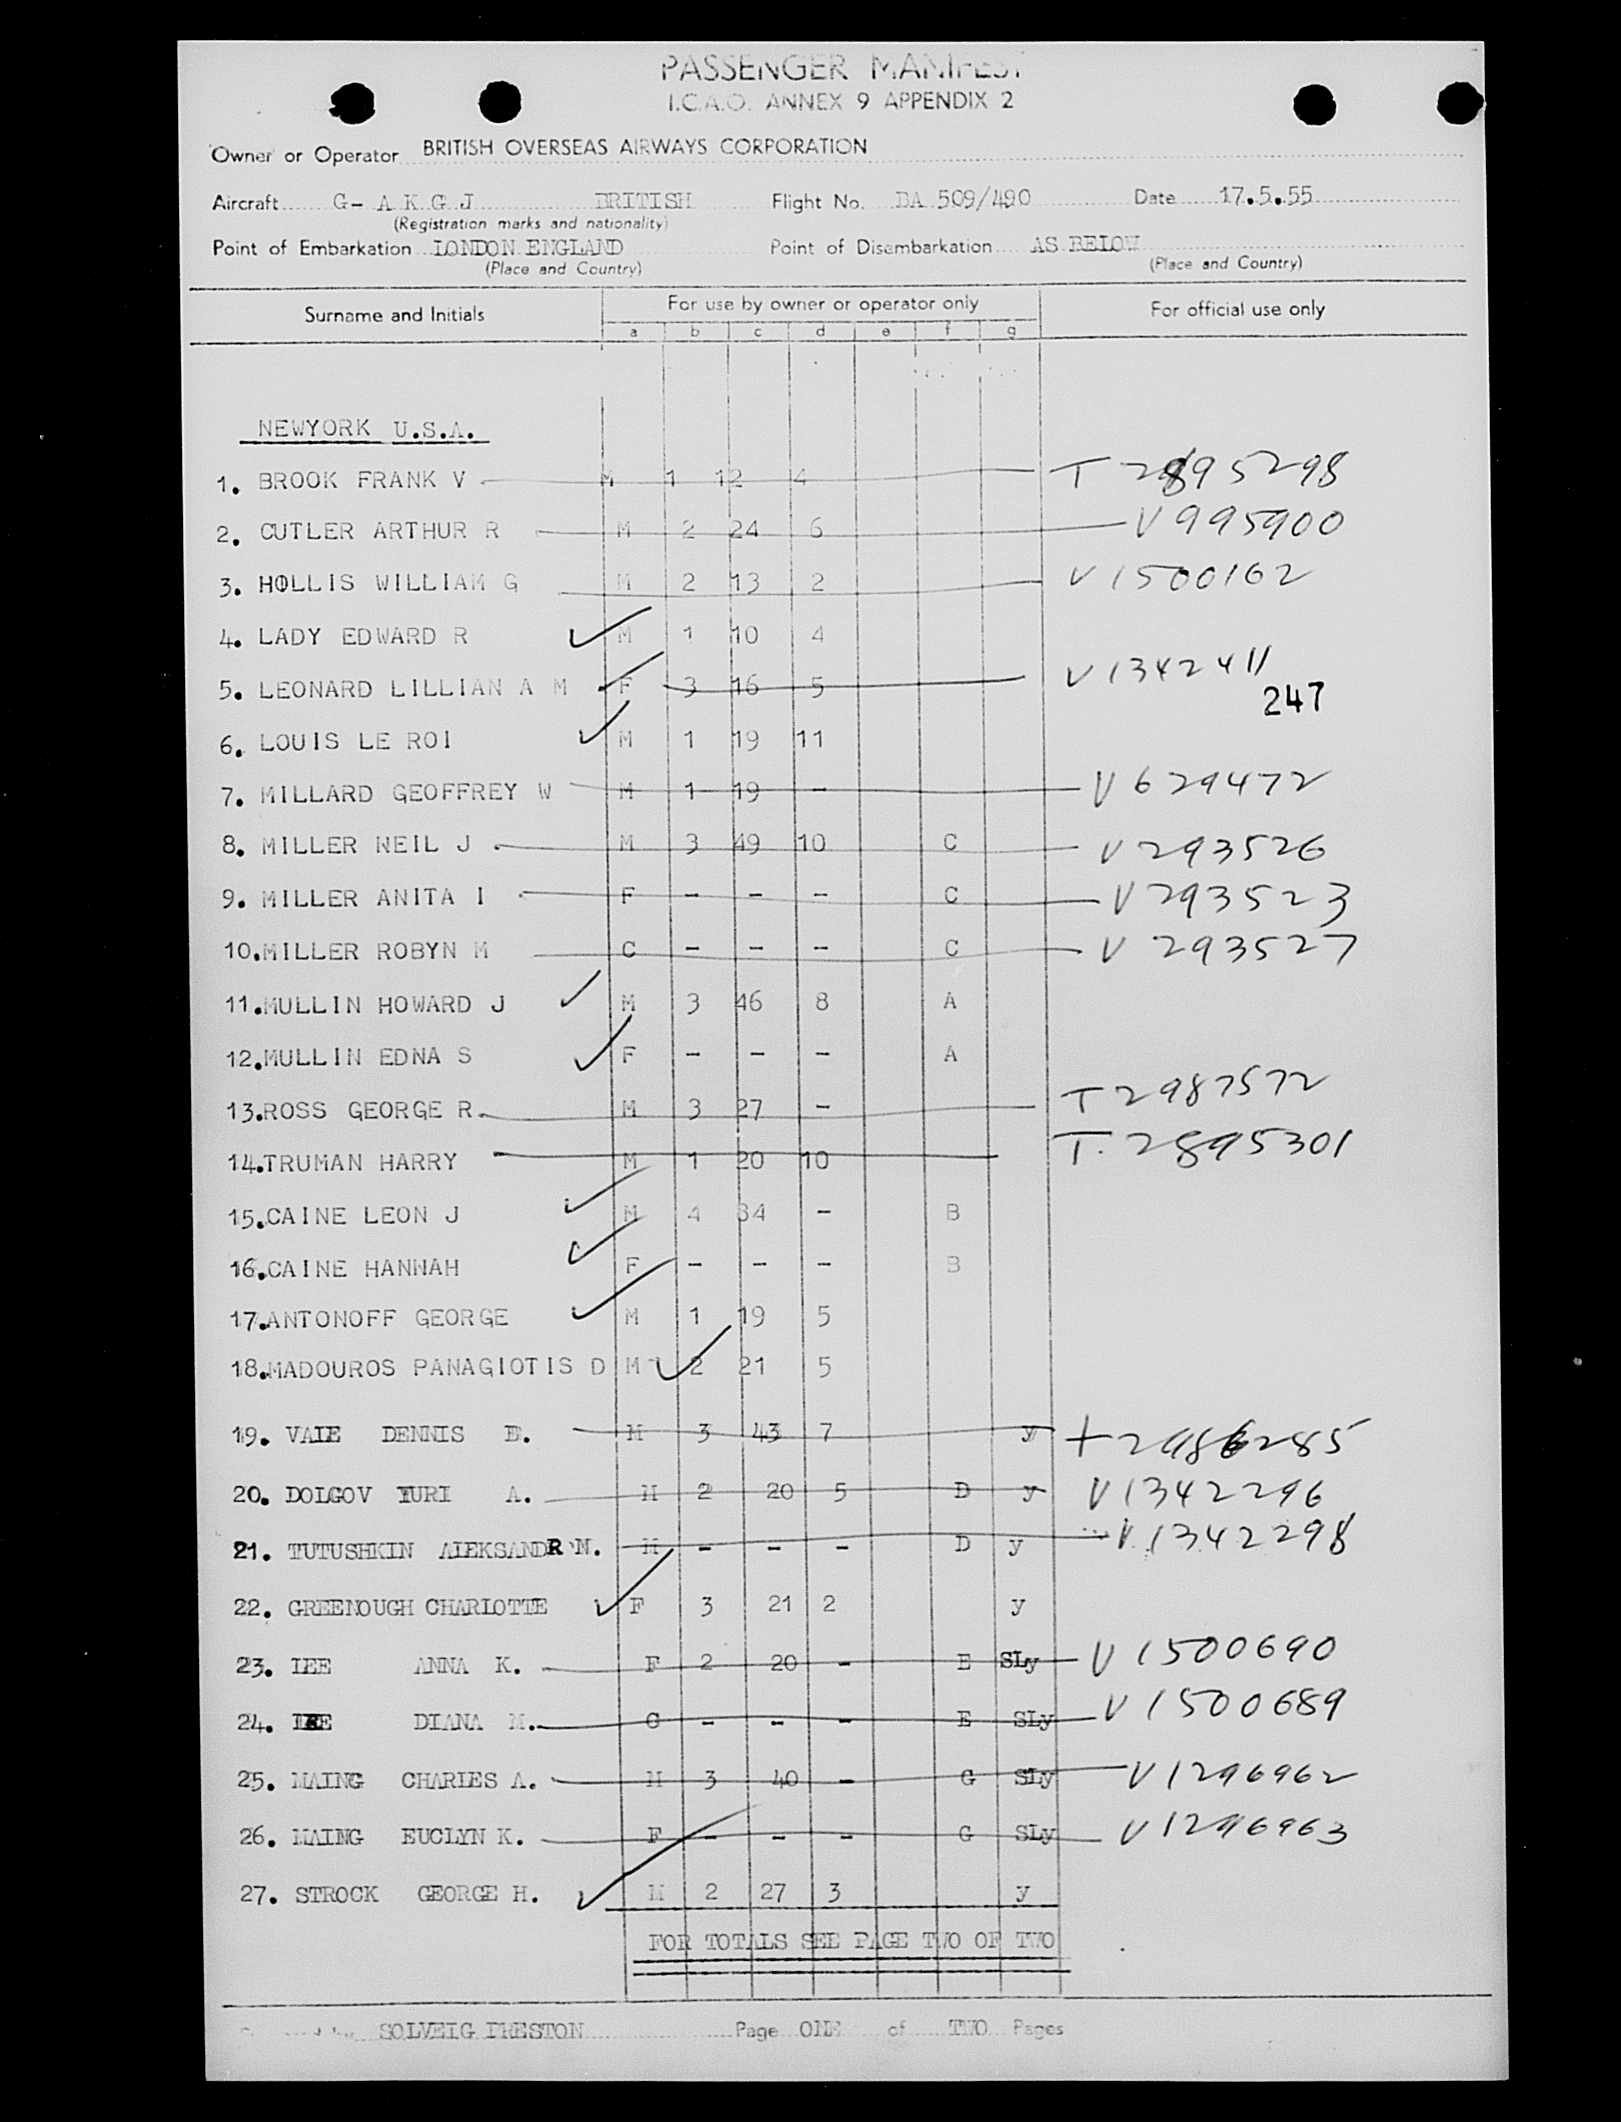 PASSENGER MANIFEST
I.C.A.O. ANNEX 9 APPENDIX 2
Owner or Operator BRITISH OVERSEAS AIRWAYS CORPORATION
Aircraft G- A K G J BRITISH Flight No. BA 509/490 Date 17.5.55
(Registration marks and nationality)
Point of Embarkation LONDON ENGLAND Point of Disembarkation AS BELOW
(Place and Country) (Place and Country)
Surname and Initials For use by owner or operator only For official use only
a b c d e f g
NEWYORK U.S.A.
1. BROOK FRANK V M 1 12 4 T 2895298
2. CUTLER ARTHUR R M 2 24 6 V 995900
3. HOLLIS WILLIAM G M 2 13 2 V 1500162
4. LADY EDWARD R M 1 10 4
5. LEONARD LILLIAN A M F 3 16 5 V 1342411
247
6. LOUIS LE ROI M 1 19 11
7. MILLARD GEOFFREY W M 1 19 - V 629472
8. MILLER NEIL J M 3 49 10 C V 293526
9. MILLER ANITA I F - - - C V 293523
10. MILLER ROBYN M C - - - C V 293527
11. MULLIN HOWARD J M 3 46 8 A
12. MULLIN EDNA S F - - - A
13. ROSS GEORGE R M 3 27 - T 2987572
14. TRUMAN HARRY M 1 20 10 T. 2895301
15. CAINE LEON J M 4 34 - B
16. CAINE HANNAH F - - - B
17. ANTONOFF GEORGE M 1 19 5
18. MADOUROS PANAGIOTIS D M 2 21 5
19. VALE DENNIS E. M 3 43 7 y T 2986285
20. DOLGOV YURI A. M 2 20 5 D y V 1342296
21. TUTUSHKIN ALEKSANDR N. M - - - D y V 1342298
22. GREENOUGH CHARLOTTE F 3 21 2 y
23. LEE ANNA K. F 2 20 - E SLy V 1500690
24. LEE DIANA M. C - - - E SLy V 1500689
25. MAING CHARLES A. M 3 40 - G SLy V 1296962
26. MAING EUCLYN K. F - - - G SLy V 1296963
27. STROCK GEORGE H. M 2 27 3 y
FOR TOTALS SEE PAGE TWO OF TWO
SOLVEIG PRESTON Page ONE of TWO Pages